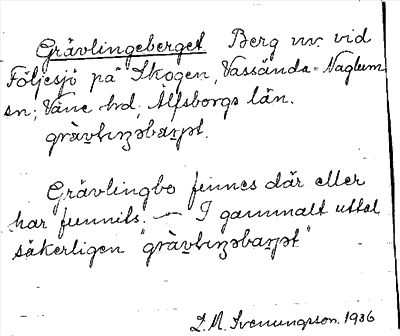 Grävlingeberget Berg nv. vid
Följesjö på Skogen, Vassända-Naglum
sn; Väne hd, Älfsborgs län.
grä̀vlıŋəbarjət.
Grävlingbo finnes där eller
har funnits. — I gammalt uttal
säkerligen "grä̀vlıŋəbarjət"
Svenungsson. 1936